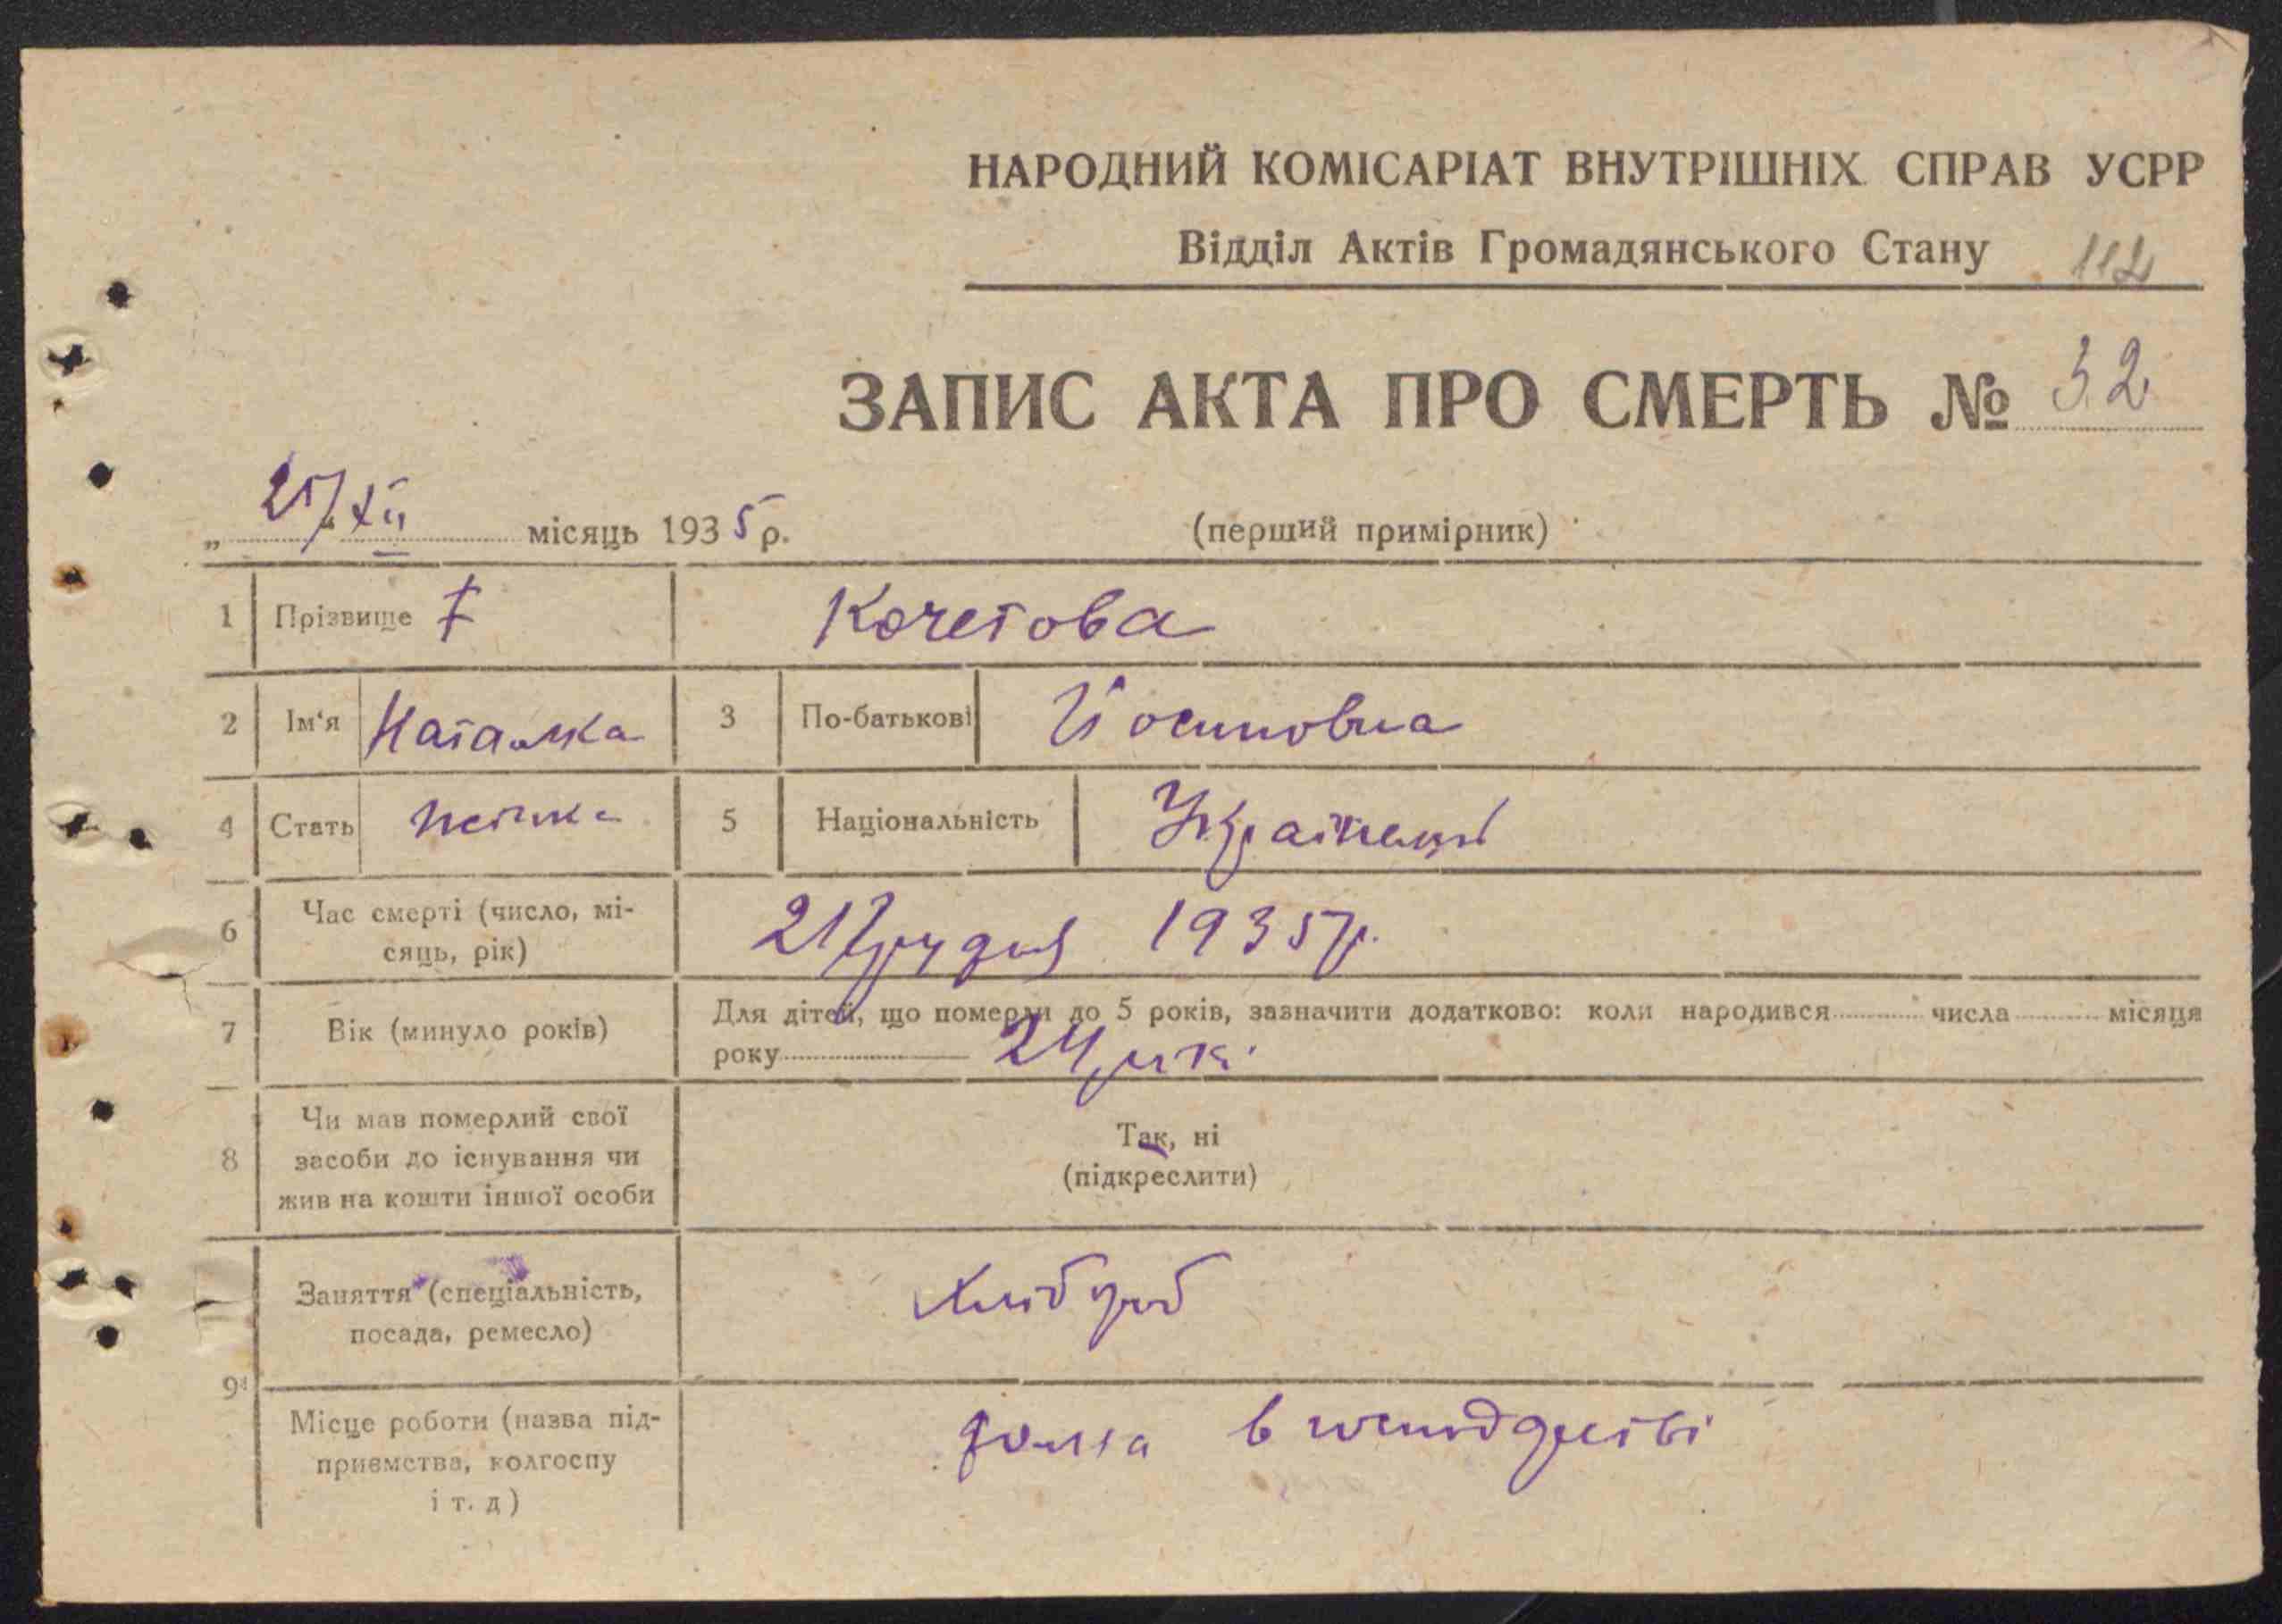 НАРОДНИЙ КОМІСАРІАТ ВНУТРІШНІХ СПРАВ УСРР
Відділ Актів Громадянського Стану 112
ЗАПИС АКТА ПРО СМЕРТЬ № 32
„ 21/XII місяць 1935 р. (перший примірник)
1 Прізвище Кочетова
2 Ім'я Наталка 3 По-батькові Йосиповна
4 Стать 5 Національність
6 Час смерті (число, місяць, рік) 21 грудня 1935 р.
7 Вік (минуло років) Для дітей, що померли до 5 років, зазначити додатково: коли народився числа місяця
року 24 рік
8 Чи мав померлий свої
засоби до існування чи
жив на кошти іншої особи
Так, ні
(підкреслити)
9
Заняття (спеціальність,
посада, ремесло)
Хлібороб
Місце роботи (назва під-
приємства, колгоспу
і т. д)
дома в господарстві